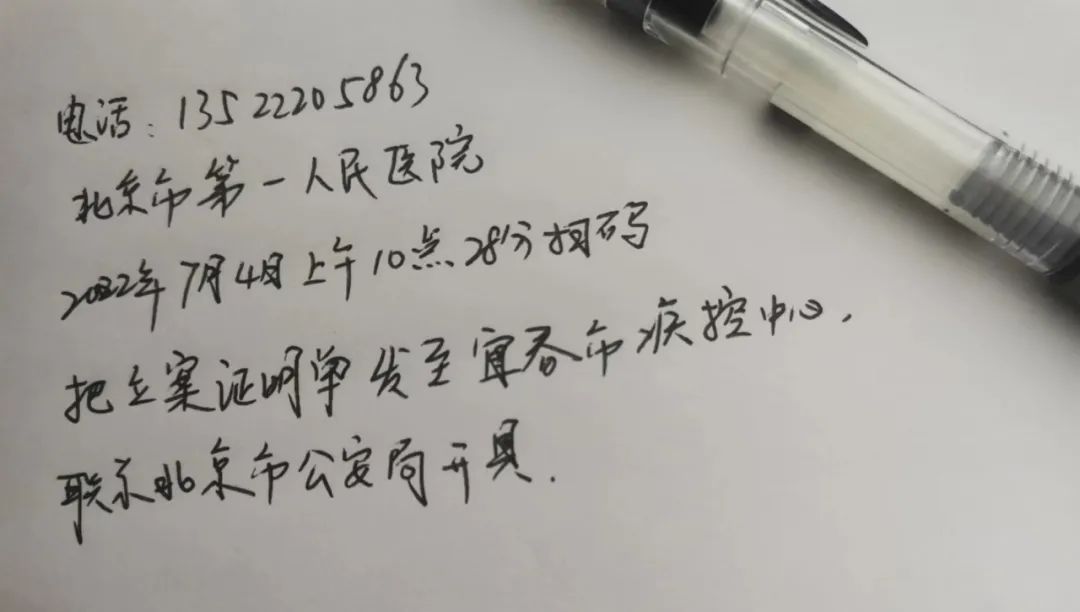 电话：13522205863
北京市第一人民医院
2022年7月4日上午10点28分扫码
把立案证明单发至宜春市疾控中心.
联系北京市公安局开具.